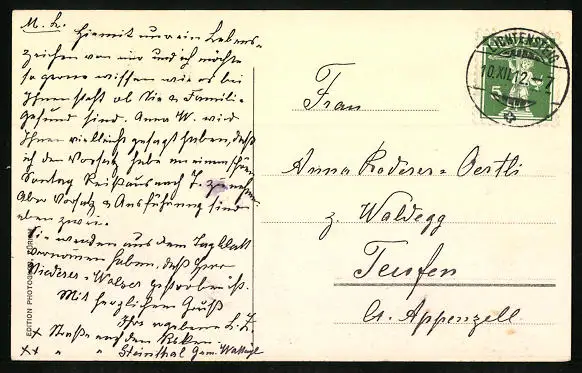 M. L.
Hiermit nur ein Lebens-
zeichen von mir und ich möchte
so gerne wissen wie es bei
Ihnen steht ob Sie & Familie
gesund sind. Anna W. wird
Ihnen vielleicht gesagt haben, daß
ich den Vorsatz habe an einem schönen
Sonntag Reißaus nach T. zu nehmen.
Aber Vorsatz & Ausführung sind
eben zwei.
Sie werden aus dem Tagblatt
vernommen haben, daß Herr
Niederer-Walser gestorben ist.
Mit herzlichem Gruß
Ihre ergebene
x Straße auf den
xx " " Steinthal Gem. Wattwil
EDITION PHOTOGLOB, ZÜRICH
LICHTENSTEIG
10.XII.12.-7
5
Frau
Anna Roderer-Oertli
z. Waldegg
Teufen
Ct. Appenzell